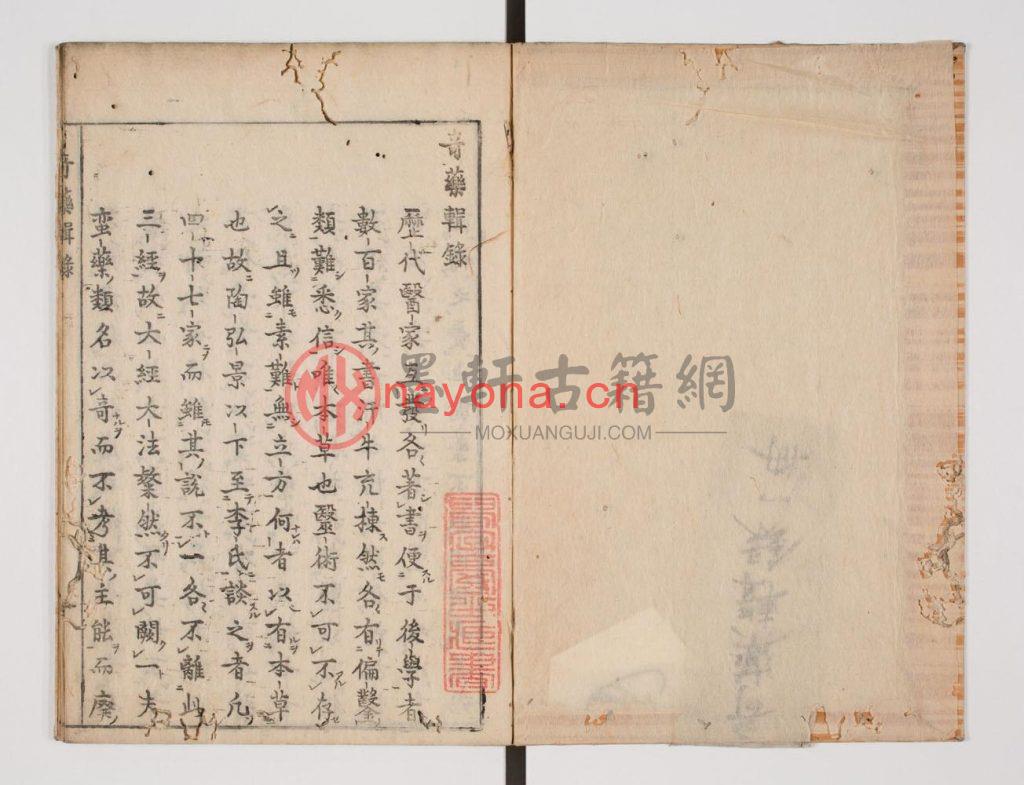 竒藥輯錄
歷代醫家互發各著書便于後學者
數百家其書汗牛充棟然各有偏鑿
類難悉信唯本草也毉術不可不存
之且雖素難無立方何者以有本草
也故陶弘景以下至李氏談之者凢
四十七家而雖其說不一各不離此
三經故大經大法粲然不可闕一夫
蛮藥類名以竒而不考其主能而廢
竒藥輯錄
墨軒古籍網
nayona.cn
MOXUANGUJI.COM